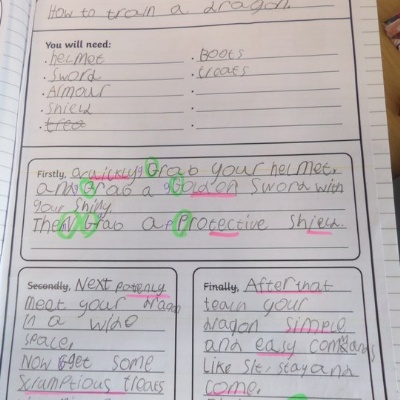 How to train a dragon.
You will need:
• helmet
• Sword
• Armour
• Shield
• Boots
• treats
Firstly, quickly Grab your helmet,
and Grab a Golden Sword with
your Shiny.
Then Grab a Protective Shield.
Secondly, Next
meet your dragon
in a wide
space,
Now get some
Scrumptious treats
Finally, After that
teach your
dragon simple
and easy comands
Like Sit, stay and
come.